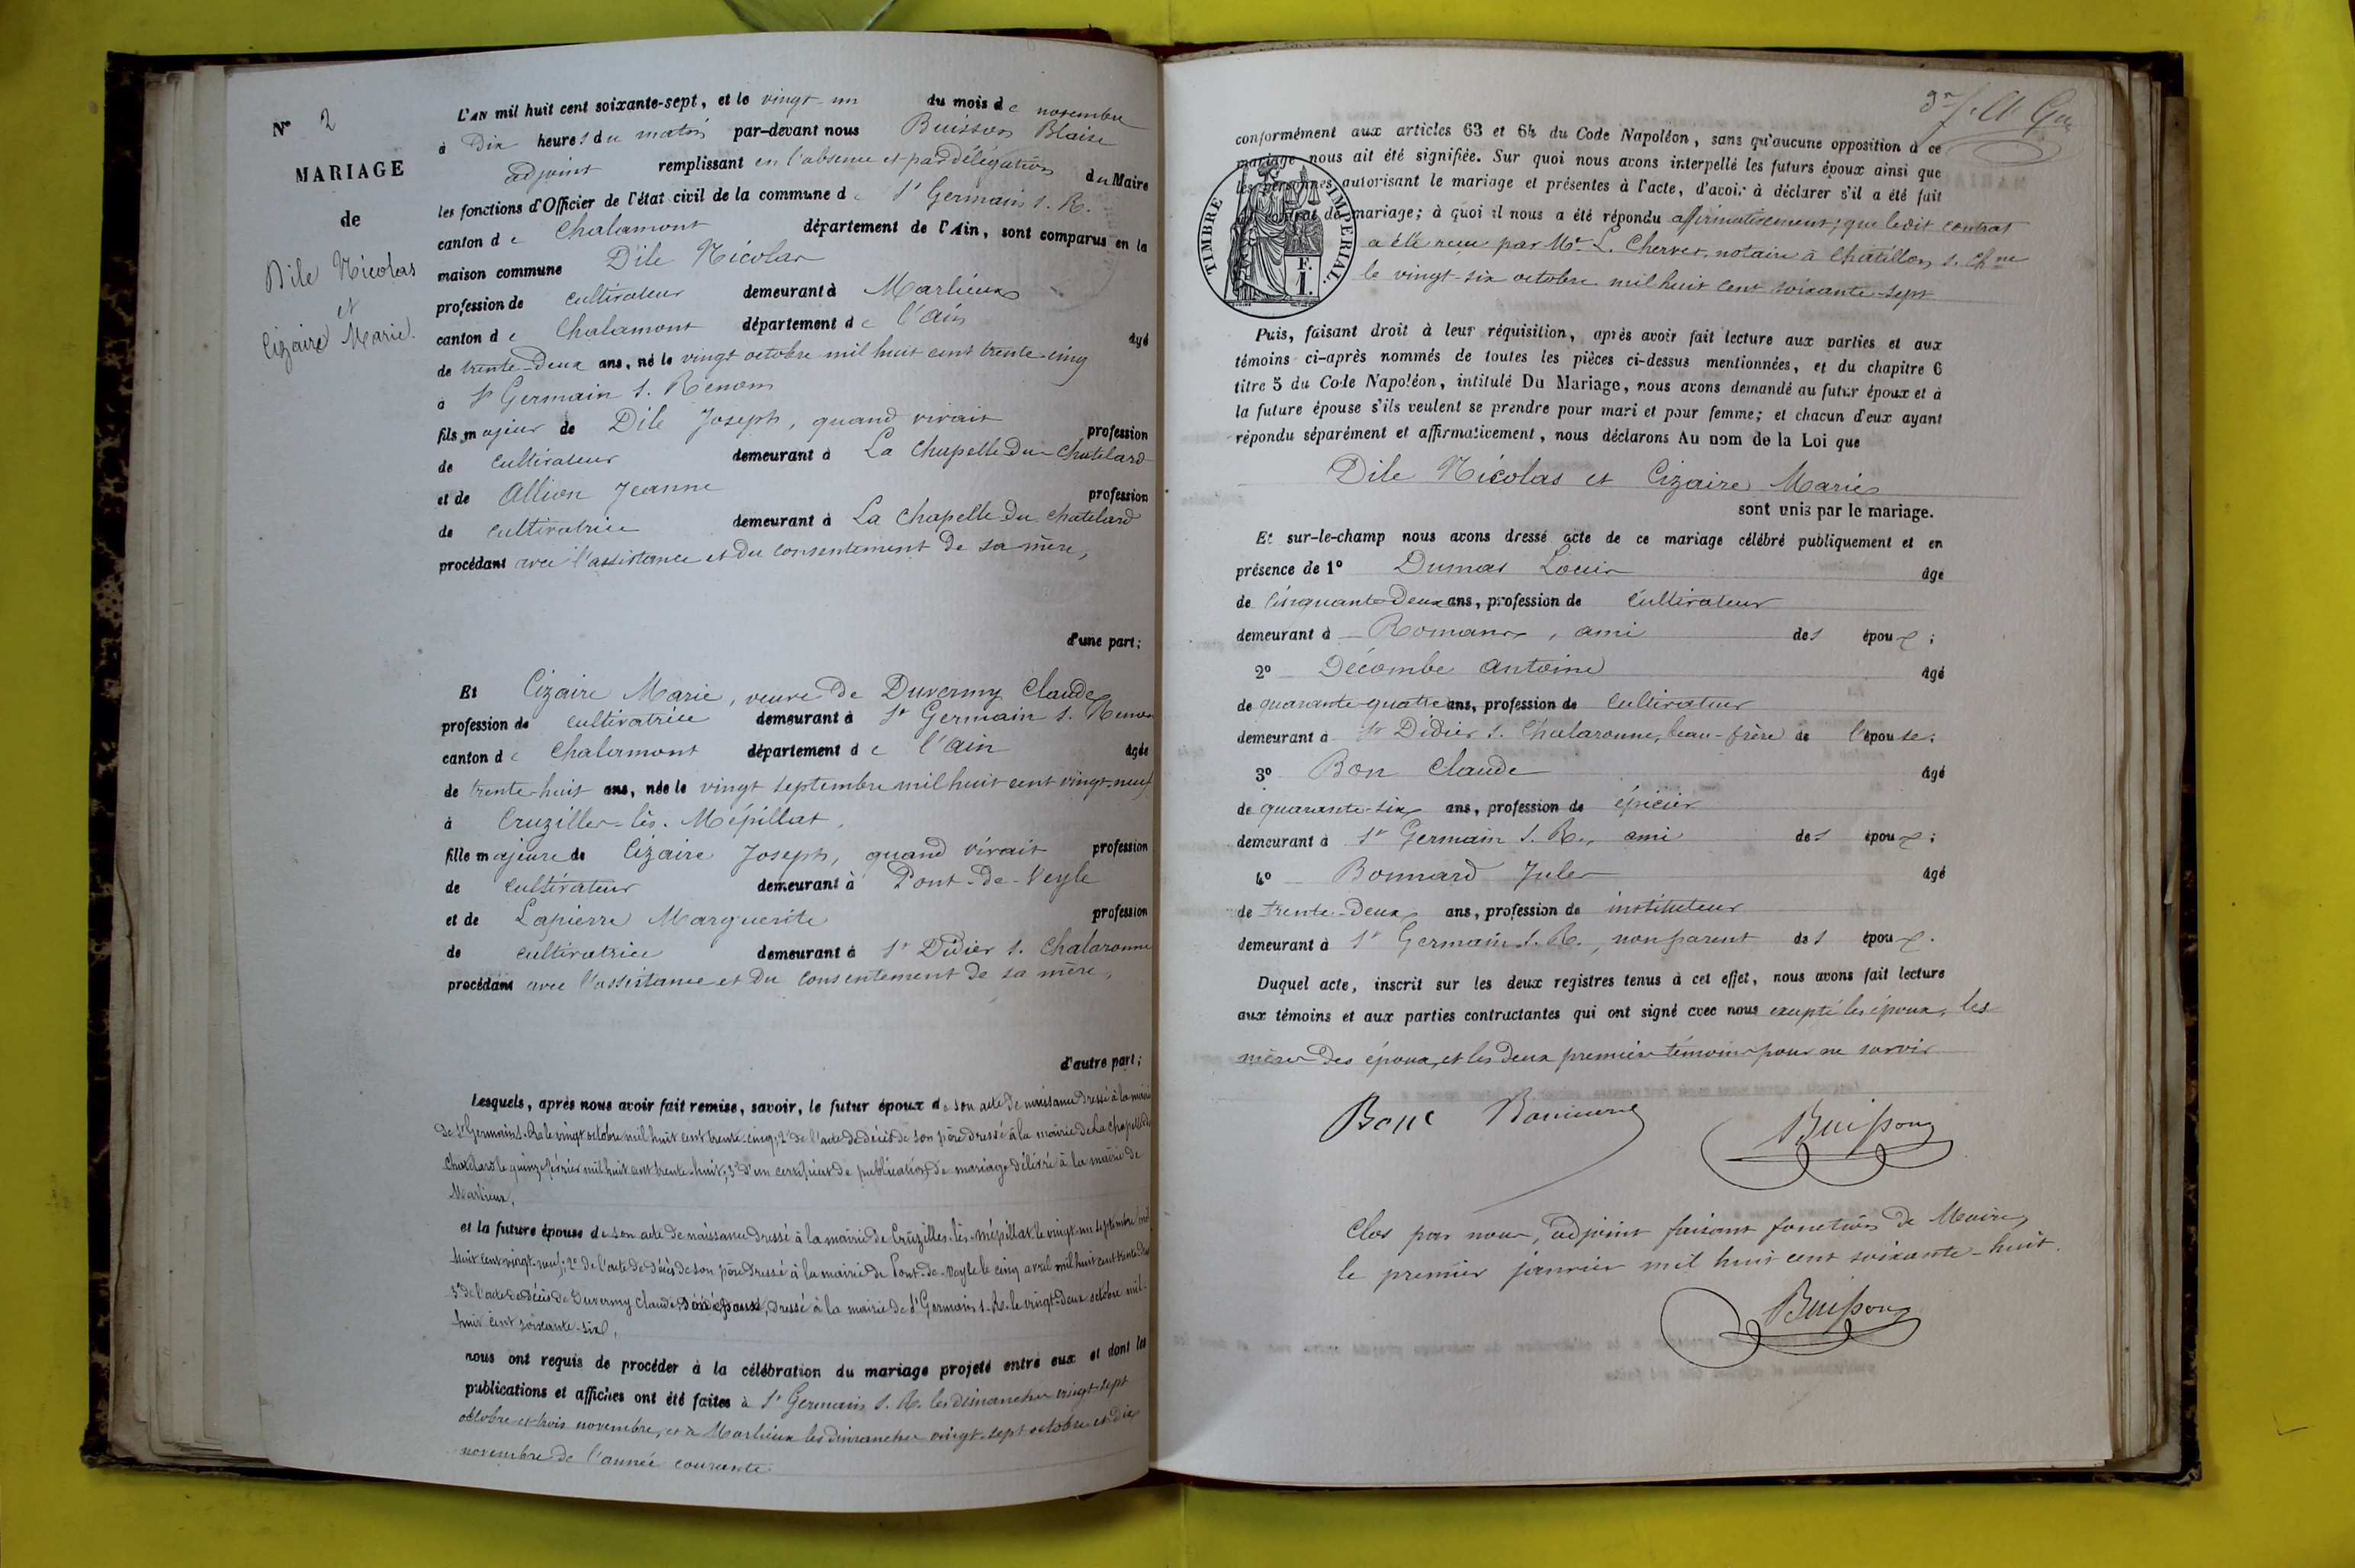 N° 2
MARIAGE
de
Dile Nicolas
et
Cizaire Marie.
L'AN mil huit cent soixante-sept, et le vingt-un du mois de novembre
à Dix heures du matin par-devant nous Buisson Blaise
adjoint remplissant en l'absence et par délégation du Maire
les fonctions d'Officier de l'état civil de la commune de St Germain s. R.
canton de Chalamont département de l'Ain, sont comparus en la
maison commune Dile Nicolas
profession de cultivateur demeurant à Marlieux
canton de Chalamont département de l'Ain âgé
de trente-deux ans, né le vingt octobre mil huit cent trente-cinq
à St Germain s. Renom
fils majeur de Dile Joseph, quand vivait profession
de cultivateur demeurant à La Chapelle du Chatelard
et de Allion Jeanne profession
de cultivatrice demeurant à La Chapelle du Chatelard
procédant avec l'assistance et du consentement de sa mère,
d'une part;
Et Cizaire Marie, veuve de Duvernay Claude
profession de cultivatrice demeurant à St Germain s. Renom
canton de Chalamont département de l'Ain âgée
de trente-huit ans, née le vingt septembre mil huit cent vingt-neuf
à Cruzilles-lès-Mépillat,
fille majeure de Cizaire Joseph, quand vivait profession
de cultivateur demeurant à Pont-de-Veyle
et de Lapierre Marguerite profession
de cultivatrice demeurant à St Didier s. Chalaronne
procédant avec l'assistance et du consentement de sa mère,
d'autre part;
Lesquels, après nous avoir fait remise, savoir, le futur époux de son acte de naissance dressé à la mairie
de St Germain s. R. le vingt octobre mil huit cent trente-cinq; 2° de l'acte de décès de son père dressé à la mairie de La Chapelle du
Chatelard le quinze février mil huit cent trente-huit; 3° d'un certificat de publication de mariage délivré à la mairie de
Marlieux,
et la future épouse de son acte de naissance dressé à la mairie de Cruzilles-lès-Mépillat le vingt-un septembre mil
huit cent vingt-neuf; 2° de l'acte de décès de son père dressé à la mairie de Pont-de-Veyle le cinq avril mil huit cent trente
3° de l'acte de décès de Duvernay Claude, son époux, dressé à la mairie de St Germain s. R. le vingt-deux octobre mil-
huit cent soixante-six,
nous ont requis de procéder à la célébration du mariage projeté entre eux et dont les
publications et affiches ont été faites à St Germain s. R. les dimanches vingt-sept
octobre et trois novembre, et à Marlieux les dimanches vingt-sept octobre et dix
novembre de l'année courante.
conformément aux articles 63 et 64 du Code Napoléon, sans qu'aucune opposition à ce
mariage nous ait été signifiée. Sur quoi nous avons interpellé les futurs époux ainsi que
les personnes autorisant le mariage et présentes à l'acte, d'avoir à déclarer s'il a été fait
contrat de mariage; à quoi il nous a été répondu affirmativement; que ledit contrat
a été reçu par Me L. Chervet, notaire à Châtillon s. Chne
le vingt-six octobre mil huit cent soixante-sept
TIMBRE IMPÉRIAL.
F.
1.
Puis, faisant droit à leur réquisition, après avoir fait lecture aux parties et aux
témoins ci-après nommés de toutes les pièces ci-dessus mentionnées, et du chapitre 6
titre 5 du Code Napoléon, intitulé Du Mariage, nous avons demandé au futur époux et à
la future épouse s'ils veulent se prendre pour mari et pour femme; et chacun d'eux ayant
répondu séparément et affirmativement, nous déclarons Au nom de la Loi que
Dile Nicolas et Cizaire Marie
sont unis par le mariage.
Et sur-le-champ nous avons dressé acte de ce mariage célébré publiquement et en
présence de 1° Dumas Louis âgé
de cinquante-deux ans, profession de cultivateur
demeurant à Romans, ami des époux;
2° Décombe Antoine âgé
de quarante-quatre ans, profession de cultivateur
demeurant à St Didier s. Chalaronne, beau-frère de l'épouse;
3° Bon Claude âgé
de quarante-six ans, profession de épicier
demeurant à St Germain s. R., ami des époux;
4° Bonnard Jules âgé
de trente-deux ans, profession de instituteur
demeurant à St Germain s. R., non parent des époux.
Duquel acte, inscrit sur les deux registres tenus à cet effet, nous avons fait lecture
aux témoins et aux parties contractantes qui ont signé avec nous excepté les époux, les
mères des époux, et les deux premiers témoins pour ne savoir
Bon Bonnard Buisson
Clos par nous, adjoint faisant fonctions de Maire,
le premier janvier mil huit cent soixante-huit.
Buisson